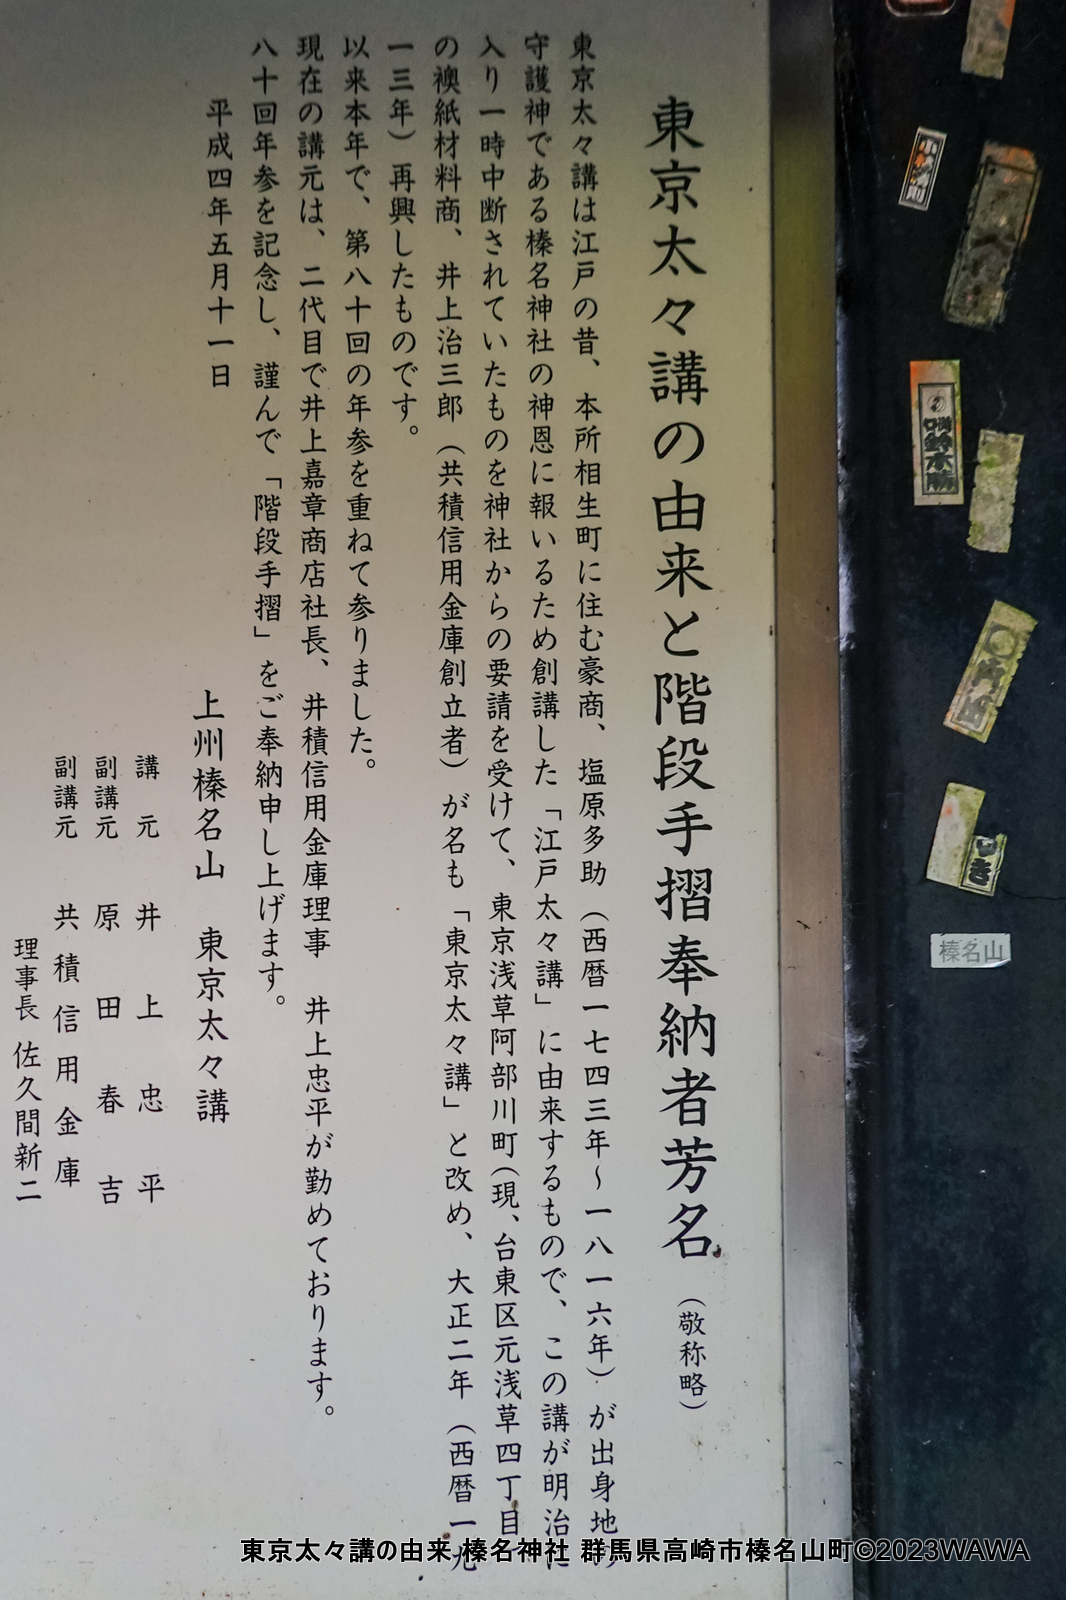 東京太々講の由来と階段手摺奉納者芳名(敬称略)
東京太々講は江戸の昔、本所相生町に住む豪商、塩原多助(西暦一七四三年〜一八一六年)が出身地の
守護神である榛名神社の神恩に報いるため創講した「江戸太々講」に由来するもので、この講が明治に
入り一時中断されていたものを神社からの要請を受けて、東京浅草阿部川町(現、台東区元浅草四丁目)
の襖紙材料商、井上治三郎(共積信用金庫創立者)が名も「東京太々講」と改め、大正二年(西暦一九
一三年)再興したものです。
以来本年で、第八十回の年参を重ねて参りました。
現在の講元は、二代目で井上嘉章商店社長、井積信用金庫理事 井上忠平が勤めております。
八十回年参を記念し、謹んで「階段手摺」をご奉納申し上げます。
平成四年五月十一日
上州榛名山 東京太々講
講元 井上忠平
副講元 原田春吉
副講元 共積信用金庫
理事長 佐久間新二
榛名山
東京太々講の由来 榛名神社 群馬県高崎市榛名山町©2023WAWA